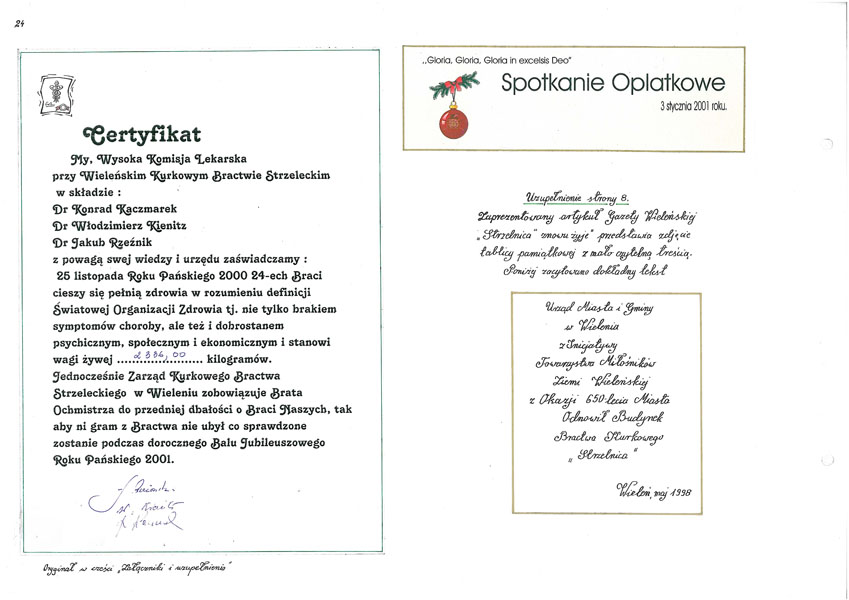 24
Certyfikat
My, Wysoka Komisja Lekarska
przy Wieleńskim Kurkowym Bractwie Strzeleckim
w składzie :
Dr Konrad Kaczmarek
Dr Włodzimierz Kienitz
Dr Jakub Rzeźnik
z powagą swej wiedzy i urzędu zaświadczamy :
25 listopada Roku Pańskiego 2000 24-ech Braci
cieszy się pełnią zdrowia w rozumieniu definicji
Światowej Organizacji Zdrowia tj. nie tylko brakiem
symptomów choroby, ale też i dobrostanem
psychicznym, społecznym i ekonomicznym i stanowi
wagi żywej ...2336,00... kilogramów.
Jednocześnie Zarząd Kurkowego Bractwa
Strzeleckiego w Wieleniu zobowiązuje Brata
Ochmistrza do przedniej dbałości o Braci Naszych, tak
aby ni gram z Bractwa nie ubył co sprawdzone
zostanie podczas dorocznego Balu Jubileuszowego
Roku Pańskiego 2001.
Oryginał w części „Załączniki i uzupełnienia"
„Gloria, Gloria, Gloria in excelsis Deo"
Spotkanie Opłatkowe
3 stycznia 2001 roku.
Uzupełnienie strony 8.
Zaprezentowany artykuł Gazety Wieleńskiej
„Strzelnica" znowu żyje" przedstawia zdjęcie
tablicy pamiątkowej z mało czytelną treścią.
Poniżej zacytowano dokładny tekst
Urząd Miasta i Gminy
w Wieleniu
z Inicjatywy
Towarzystwa Miłośników
Ziemi Wieleńskiej
z Okazji 650-lecia Miasta
Odnowił Budynek
Bractwa Kurkowego
„Strzelnica"
Wieleń, maj 1998